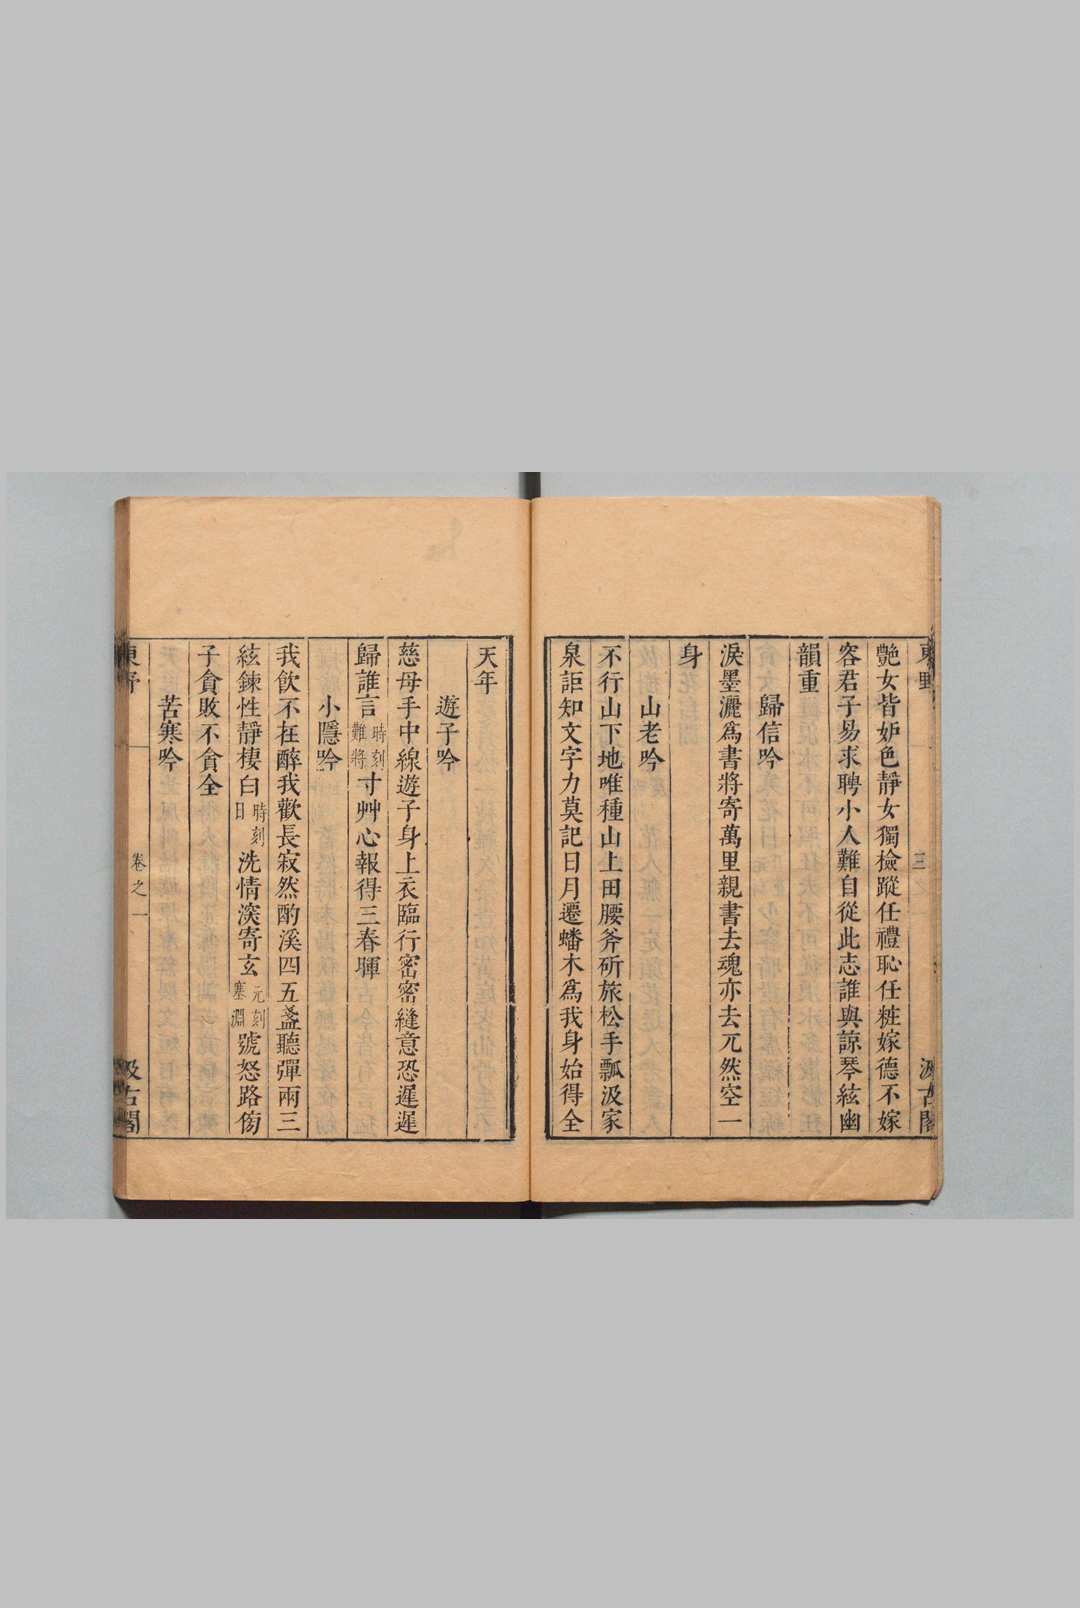 東野
三
汲古閣
艷女皆妒色靜女獨檢蹤任禮恥任粧嫁德不嫁
容君子易求聘小人難自從此志誰與諒琴絃幽
韻重
歸信吟
淚墨灑爲書將寄萬里親書去魂亦去兀然空一
身
山老吟
不行山下地唯種山上田腰斧斫旅松手瓢汲家
泉詎知文字力莫記日月遷蟠木爲我身始得全
天年
遊子吟
慈母手中線遊子身上衣臨行密密縫意恐遲遲
歸誰言時刻難將寸艸心報得三春暉
小隱吟
我飲不在醉我歡長寂然酌溪四五盞聽彈兩三
絃鍊性靜棲白時刻日洗情深寄玄元刻塞淵號怒路傍
子貪敗不貪全
苦寒吟
東野
卷之一
汲古閣